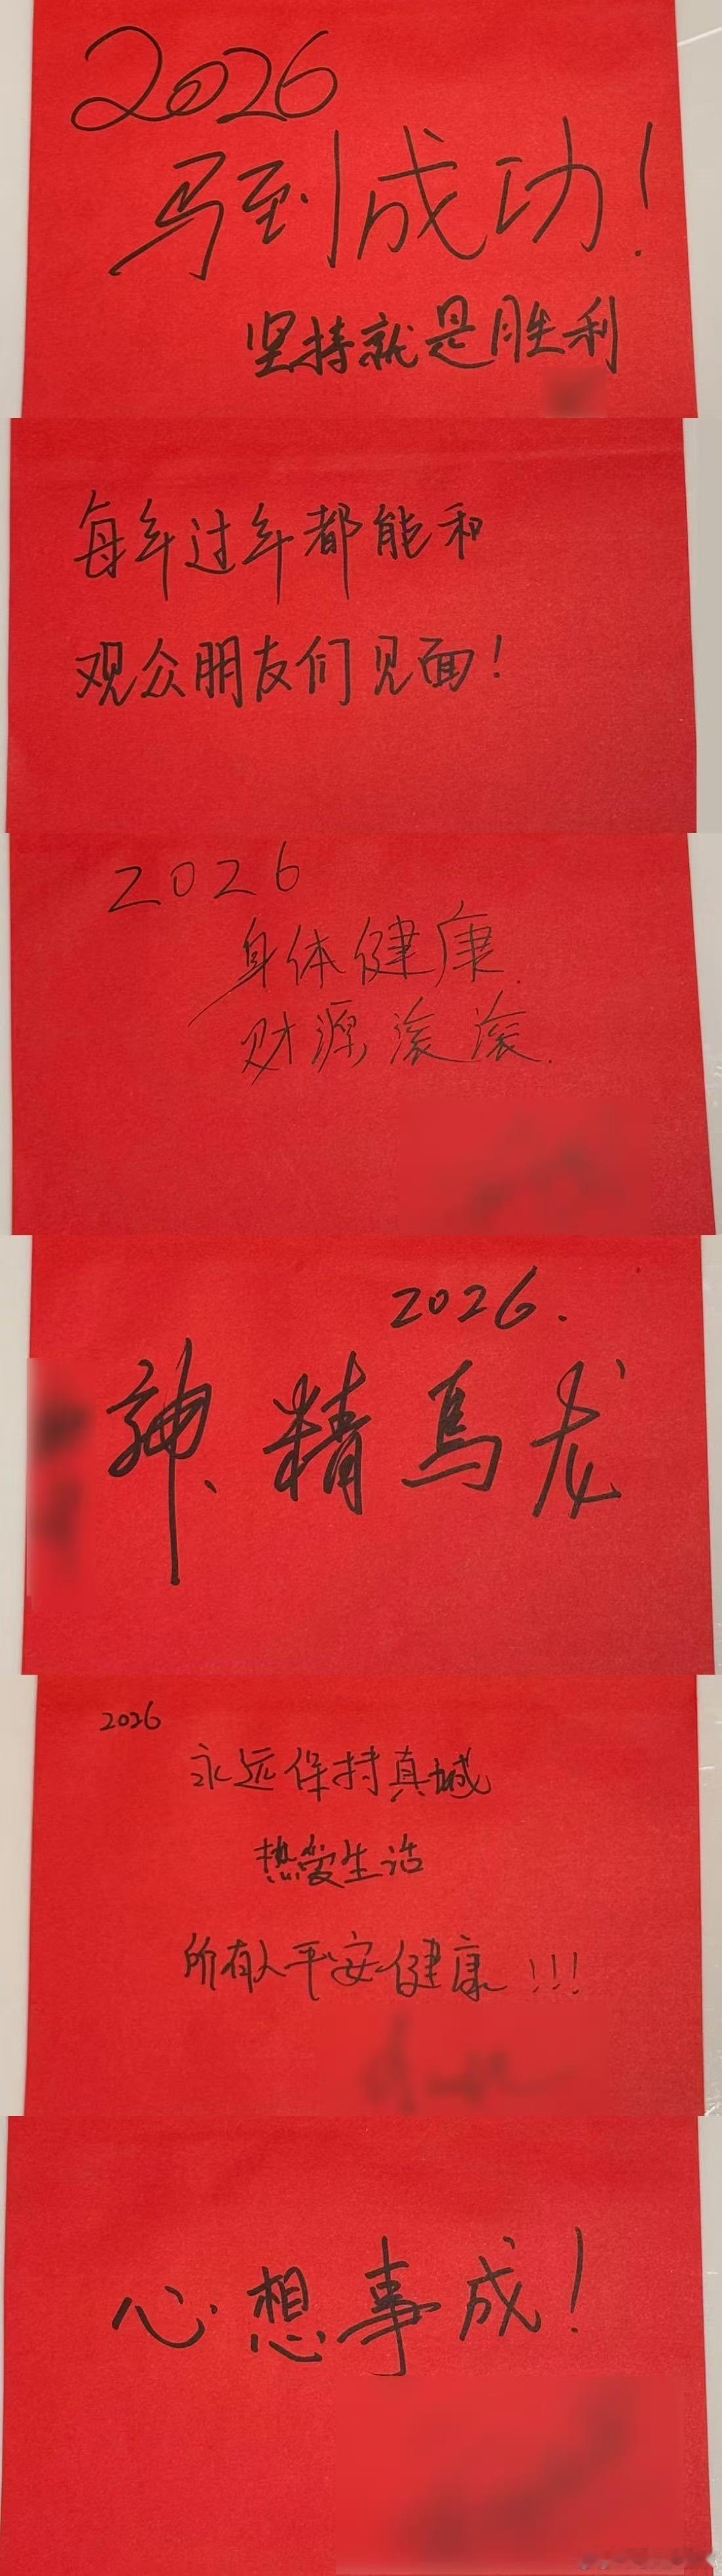 2026
马到成功！
坚持就是胜利
每年过年都能和
观众朋友们见面！
2026
身体健康
财源滚滚.
2026.
神精馬龙
2026
永远保持真诚
热爱生活
所有人平安健康！！！
心想事成！